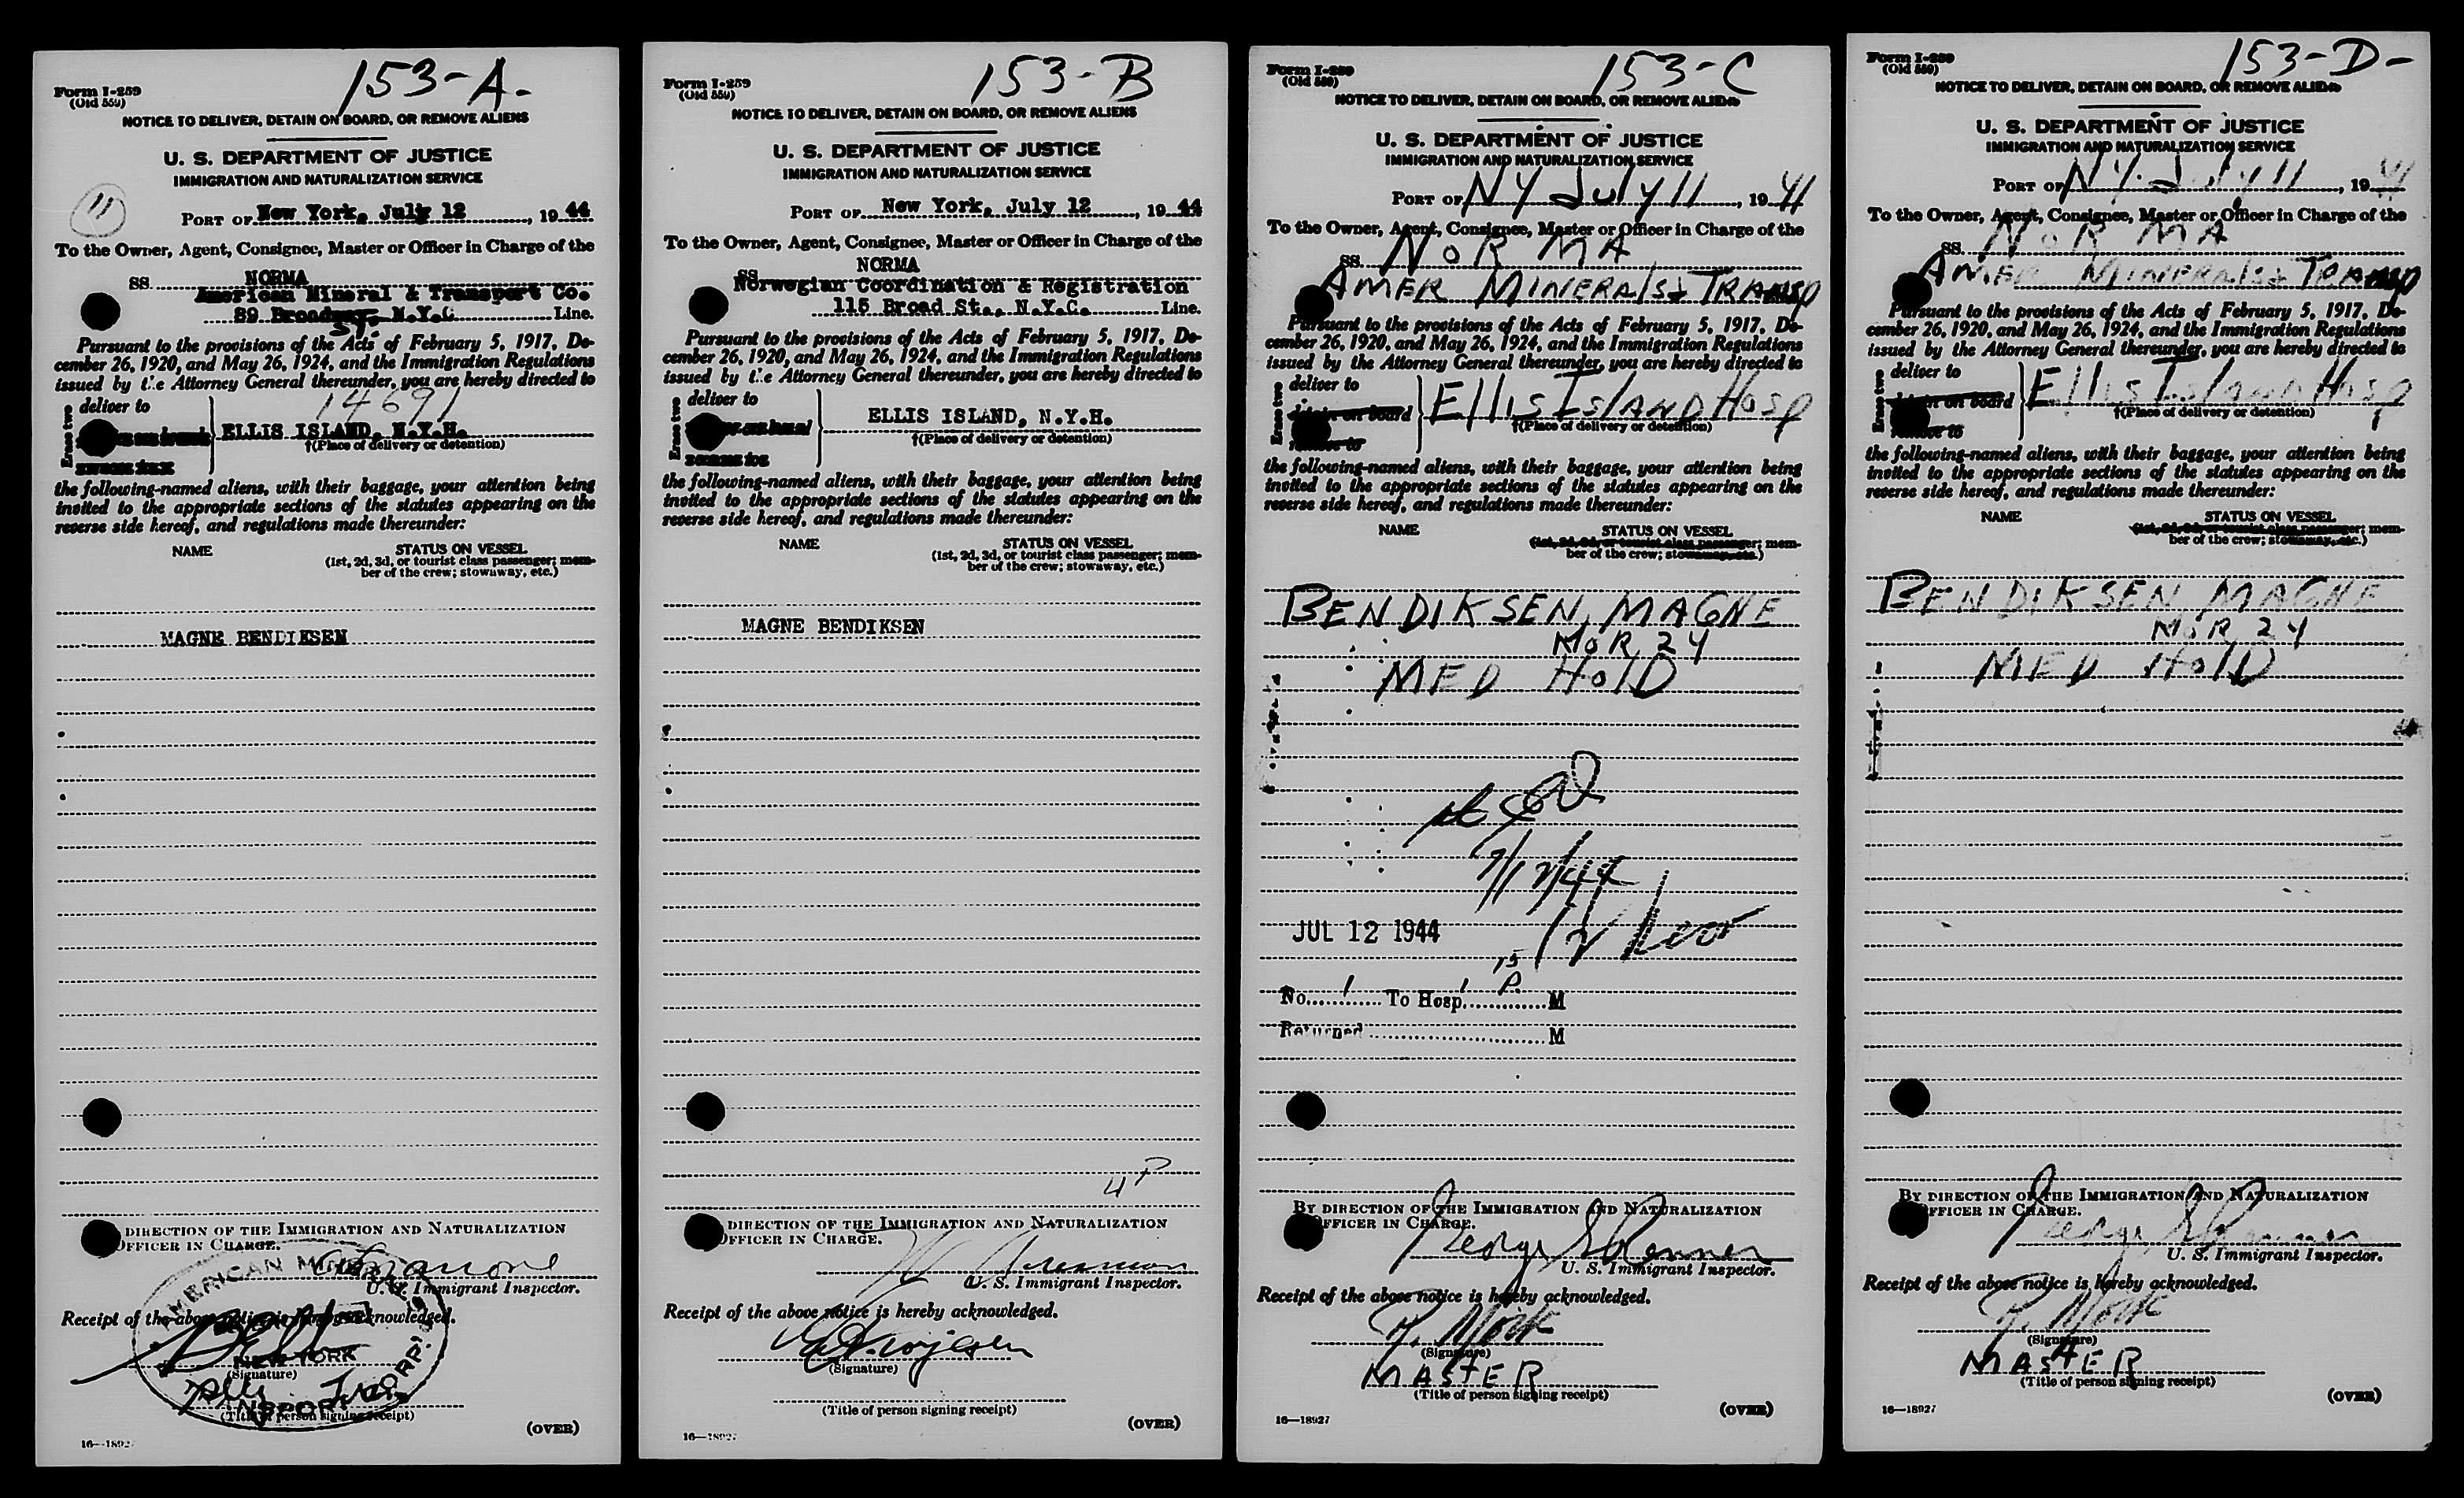 153-A.
Form I-259
(Old 559)
NOTICE TO DELIVER, DETAIN ON BOARD, OR REMOVE ALIENS
U. S. DEPARTMENT OF JUSTICE
IMMIGRATION AND NATURALIZATION SERVICE
11
PORT OF New York, July 12, 1944
To the Owner, Agent, Consignee, Master or Officer in Charge of the
SS. NORMA
American Mineral & Transport Co.
89 Broad St. N.Y.C. Line.
Pursuant to the provisions of the Acts of February 5, 1917, De-
cember 26, 1920, and May 26, 1924, and the Immigration Regulations
issued by the Attorney General thereunder, you are hereby directed to
14691
Erase two
deliver to
ELLIS ISLAND, N.Y.H.
†(Place of delivery or detention)
the following-named aliens, with their baggage, your attention being
invited to the appropriate sections of the statutes appearing on the
reverse side hereof, and regulations made thereunder:
NAME STATUS ON VESSEL
(1st, 2d, 3d, or tourist class passenger; mem-
ber of the crew; stowaway, etc.)
MAGNE BENDIKSEN
DIRECTION OF THE IMMIGRATION AND NATURALIZATION
OFFICER IN CHARGE.
U. S. Immigrant Inspector.
Receipt of the above notice is hereby acknowledged.
AMERICAN MINERALS TRANSPORT CORP.
NEW YORK
(Signature)
(Title of person signing receipt)
(OVER)
16—18927
153-B
Form I-259
(Old 559)
NOTICE TO DELIVER, DETAIN ON BOARD, OR REMOVE ALIENS
U. S. DEPARTMENT OF JUSTICE
IMMIGRATION AND NATURALIZATION SERVICE
PORT OF New York, July 12, 1944
To the Owner, Agent, Consignee, Master or Officer in Charge of the
NORMA
SS
Norwegian Coordination & Registration
115 Broad St., N.Y.C. Line.
Pursuant to the provisions of the Acts of February 5, 1917, De-
cember 26, 1920, and May 26, 1924, and the Immigration Regulations
issued by the Attorney General thereunder, you are hereby directed to
Erase two
deliver to
ELLIS ISLAND, N.Y.H.
†(Place of delivery or detention)
the following-named aliens, with their baggage, your attention being
invited to the appropriate sections of the statutes appearing on the
reverse side hereof, and regulations made thereunder:
NAME STATUS ON VESSEL
(1st, 2d, 3d, or tourist class passenger; mem-
ber of the crew; stowaway, etc.)
MAGNE BENDIKSEN
4P
DIRECTION OF THE IMMIGRATION AND NATURALIZATION
OFFICER IN CHARGE.
U. S. Immigrant Inspector.
Receipt of the above notice is hereby acknowledged.
(Signature)
(Title of person signing receipt)
(OVER)
16—18927
153-C
Form I-259
(Old 559)
NOTICE TO DELIVER, DETAIN ON BOARD, OR REMOVE ALIENS
U. S. DEPARTMENT OF JUSTICE
IMMIGRATION AND NATURALIZATION SERVICE
PORT OF NY July 11, 1944
To the Owner, Agent, Consignee, Master or Officer in Charge of the
SS. NORMA
AMER MINERALS & TRANSP
Pursuant to the provisions of the Acts of February 5, 1917, De-
cember 26, 1920, and May 26, 1924, and the Immigration Regulations
issued by the Attorney General thereunder, you are hereby directed to
Erase two
deliver to
detain on board
remove to
Ellis Island Hosp
†(Place of delivery or detention)
the following-named aliens, with their baggage, your attention being
invited to the appropriate sections of the statutes appearing on the
reverse side hereof, and regulations made thereunder:
NAME STATUS ON VESSEL
(1st, 2d, 3d, or tourist class passenger; mem-
ber of the crew; stowaway, etc.)
BENDIKSEN, MAGNE
NOR 24
MED HOLD
7/12/44
JUL 12 1944
No. 1 To Hosp. 1 15 P. M
Returned M
BY DIRECTION OF THE IMMIGRATION AND NATURALIZATION
OFFICER IN CHARGE.
George S Renner
U. S. Immigrant Inspector.
Receipt of the above notice is hereby acknowledged.
(Signature)
MASTER
(Title of person signing receipt)
(OVER)
16—18927
153-D-
Form I-259
(Old 559)
NOTICE TO DELIVER, DETAIN ON BOARD, OR REMOVE ALIENS
U. S. DEPARTMENT OF JUSTICE
IMMIGRATION AND NATURALIZATION SERVICE
PORT OF NY. July 11, 1944
To the Owner, Agent, Consignee, Master or Officer in Charge of the
SS. NORMA
AMER MINERALS & TRANSP
Pursuant to the provisions of the Acts of February 5, 1917, De-
cember 26, 1920, and May 26, 1924, and the Immigration Regulations
issued by the Attorney General thereunder, you are hereby directed to
Erase two
deliver to
detain on board
remove to
Ellis Island Hosp
†(Place of delivery or detention)
the following-named aliens, with their baggage, your attention being
invited to the appropriate sections of the statutes appearing on the
reverse side hereof, and regulations made thereunder:
NAME STATUS ON VESSEL
(1st, 2d, 3d, or tourist class passenger; mem-
ber of the crew; stowaway, etc.)
BENDIKSEN, MAGNE
NOR 24
MED HOLD
BY DIRECTION OF THE IMMIGRATION AND NATURALIZATION
OFFICER IN CHARGE.
George S Renner
U. S. Immigrant Inspector.
Receipt of the above notice is hereby acknowledged.
(Signature)
MASTER
(Title of person signing receipt)
(OVER)
16—18927